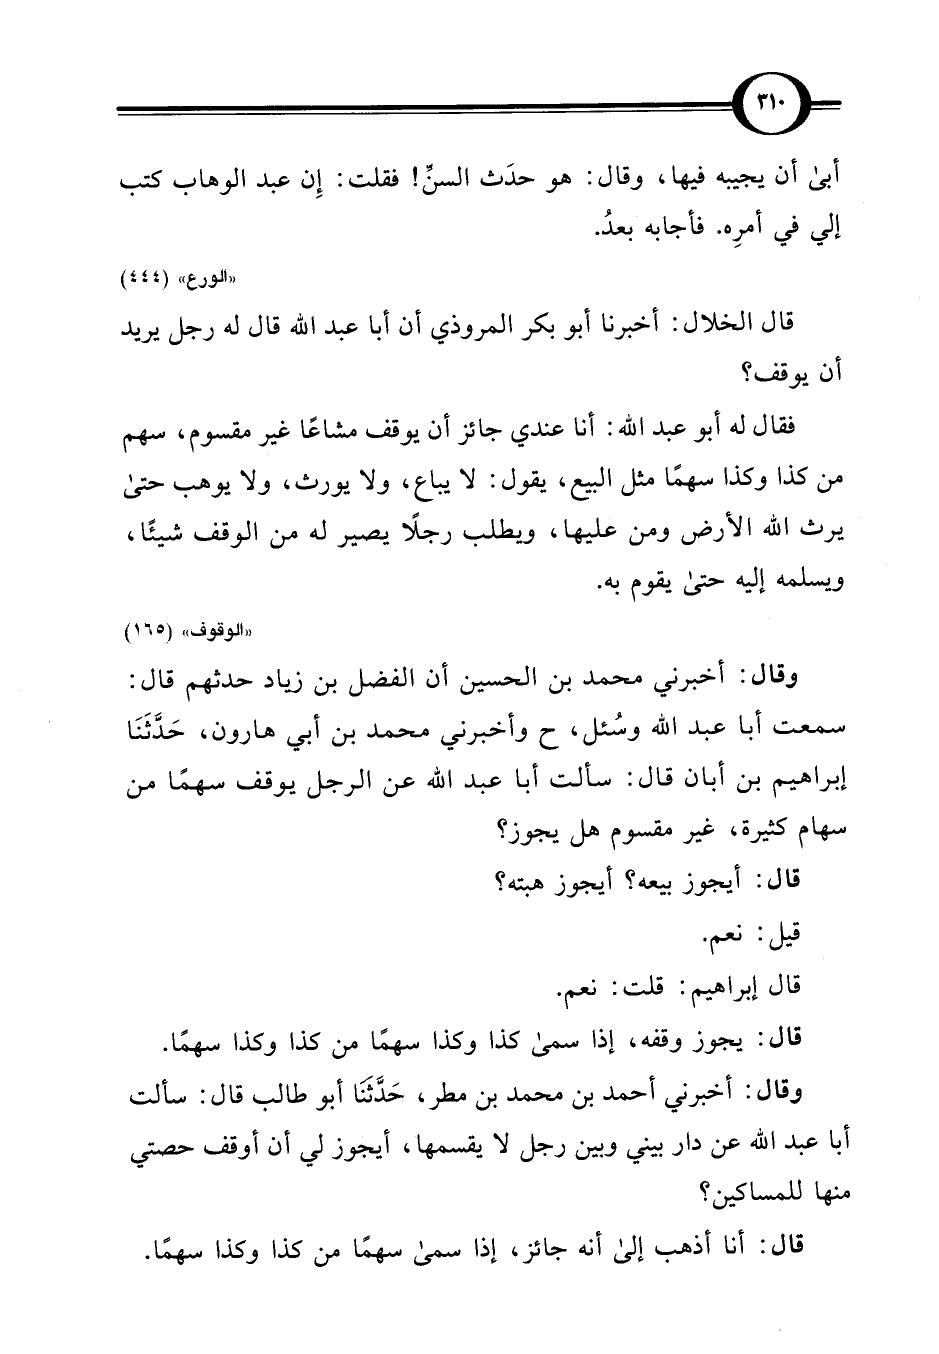 ٣١٠
أبىٰ أن يجيبه فيها، وقال: هو حدَث السنِّ! فقلت: إِن عبد الوهاب كتب
إلي في أمرِه. فأجابه بعدُ.
«الورع» (٤٤٤)
قال الخلال: أخبرنا أبو بكر المروذي أن أبا عبد الله قال له رجل يريد
أن يوقف؟
فقال له أبو عبد الله: أنا عندي جائز أن يوقف مشاعًا غير مقسوم، سهم
من كذا وكذا سهمًا مثل البيع، يقول: لا يباع، ولا يورث، ولا يوهب حتىٰ
يرث الله الأرض ومن عليها، ويطلب رجلًا يصير له من الوقف شيئًا،
ويسلمه إليه حتىٰ يقوم به.
«الوقوف» (١٦٥)
وقال: أخبرني محمد بن الحسين أن الفضل بن زياد حدثهم قال:
سمعت أبا عبد الله وسُئل، ح وأخبرني محمد بن أبي هارون، حَدَّثَنَا
إبراهيم بن أبان قال: سألت أبا عبد الله عن الرجل يوقف سهمًا من
سهام كثيرة، غير مقسوم هل يجوز؟
قال: أيجوز بيعه؟ أيجوز هبته؟
قيل: نعم.
قال إبراهيم: قلت: نعم.
قال: يجوز وقفه، إذا سمىٰ كذا وكذا سهمًا من كذا وكذا سهمًا.
وقال: أخبرني أحمد بن محمد بن مطر، حَدَّثَنَا أبو طالب قال: سألت
أبا عبد الله عن دار بيني وبين رجل لا يقسمها، أيجوز لي أن أوقف حصتي
منها للمساكين؟
قال: أنا أذهب إلىٰ أنه جائز، إذا سمىٰ سهمًا من كذا وكذا سهمًا.